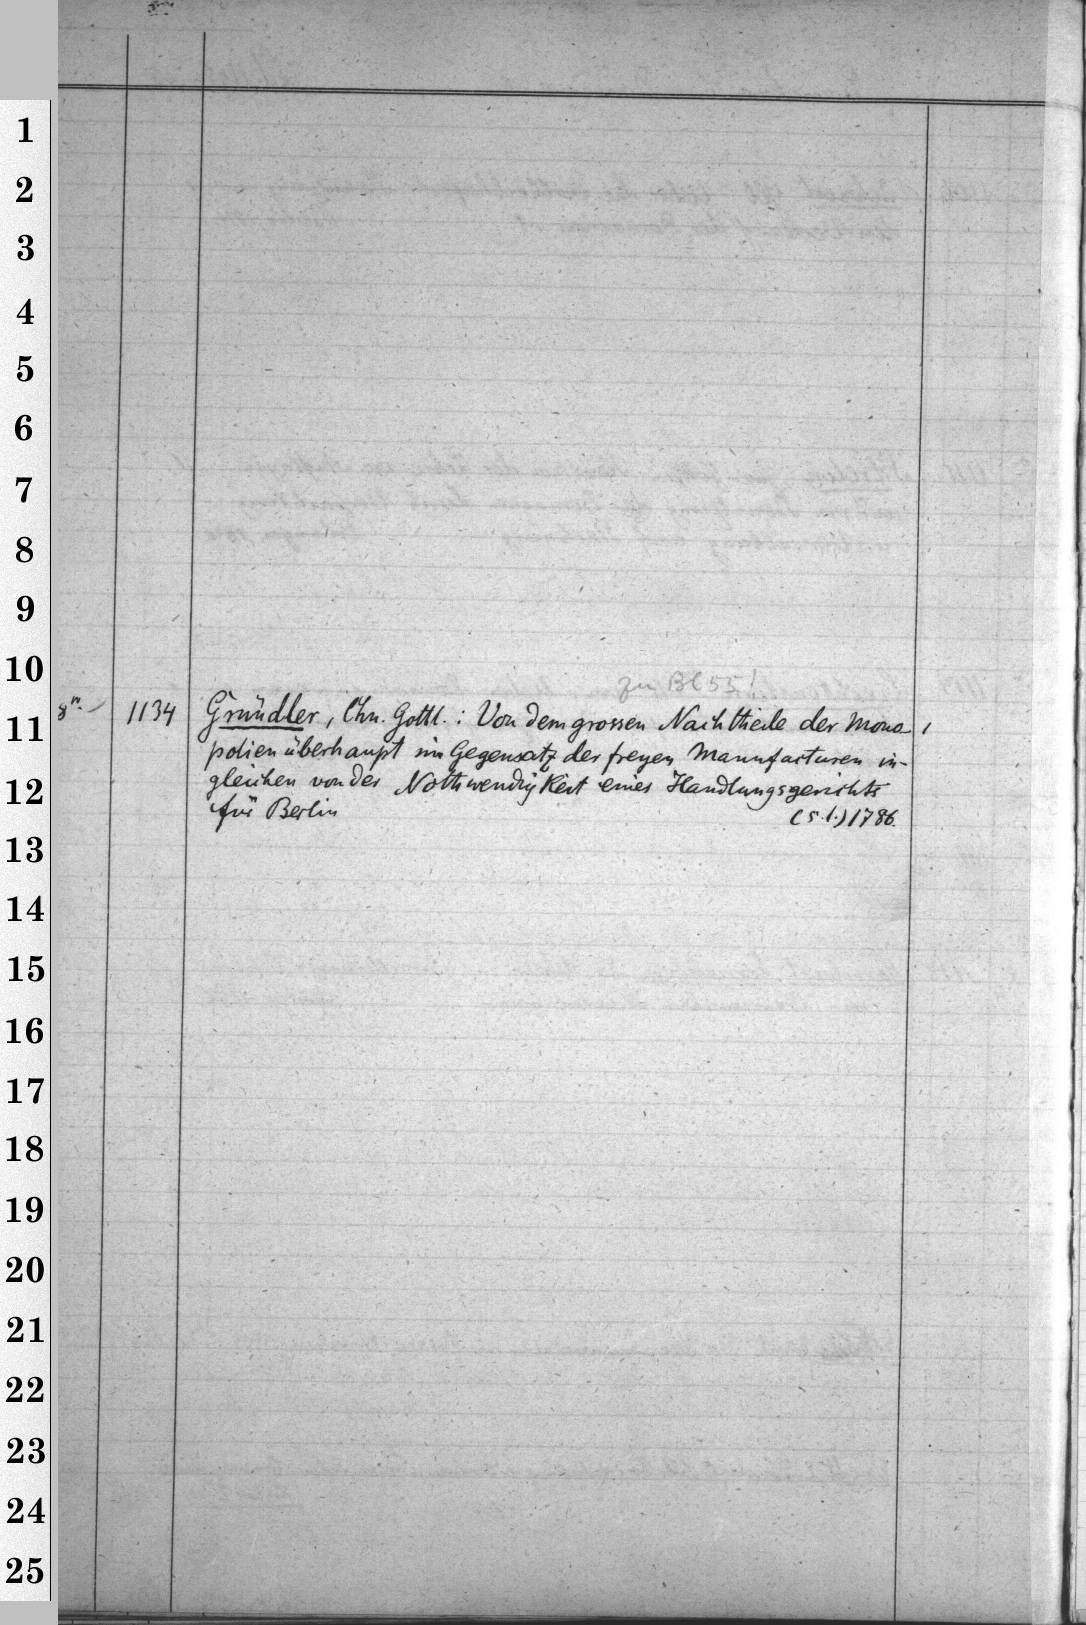 1
2
3
4
5
6
7
8
9
10
zu Bl 55!
8°. 1134 Gründler, Chn. Gottl.: Von dem grossen Nachtheile der Mono-
11
polien überhaupt im Gegensatz der freyen Manufacturen in-
gleichen von der Nothwendigkeit eines Handlungsgerichts
12
für Berlin (s.l.) 1786.
13
14
15
16
17
18
19
20
21
22
23
24
25